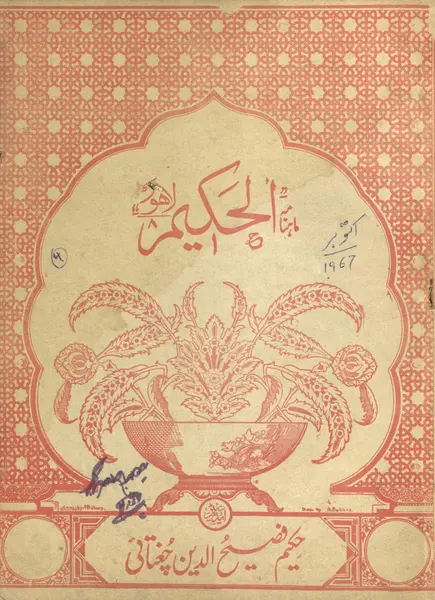 ماہنامہ الحکیم لاہور
اکتوبر
1967
۹
ایڈیٹر
حکیم فصیح الدین چغتائی